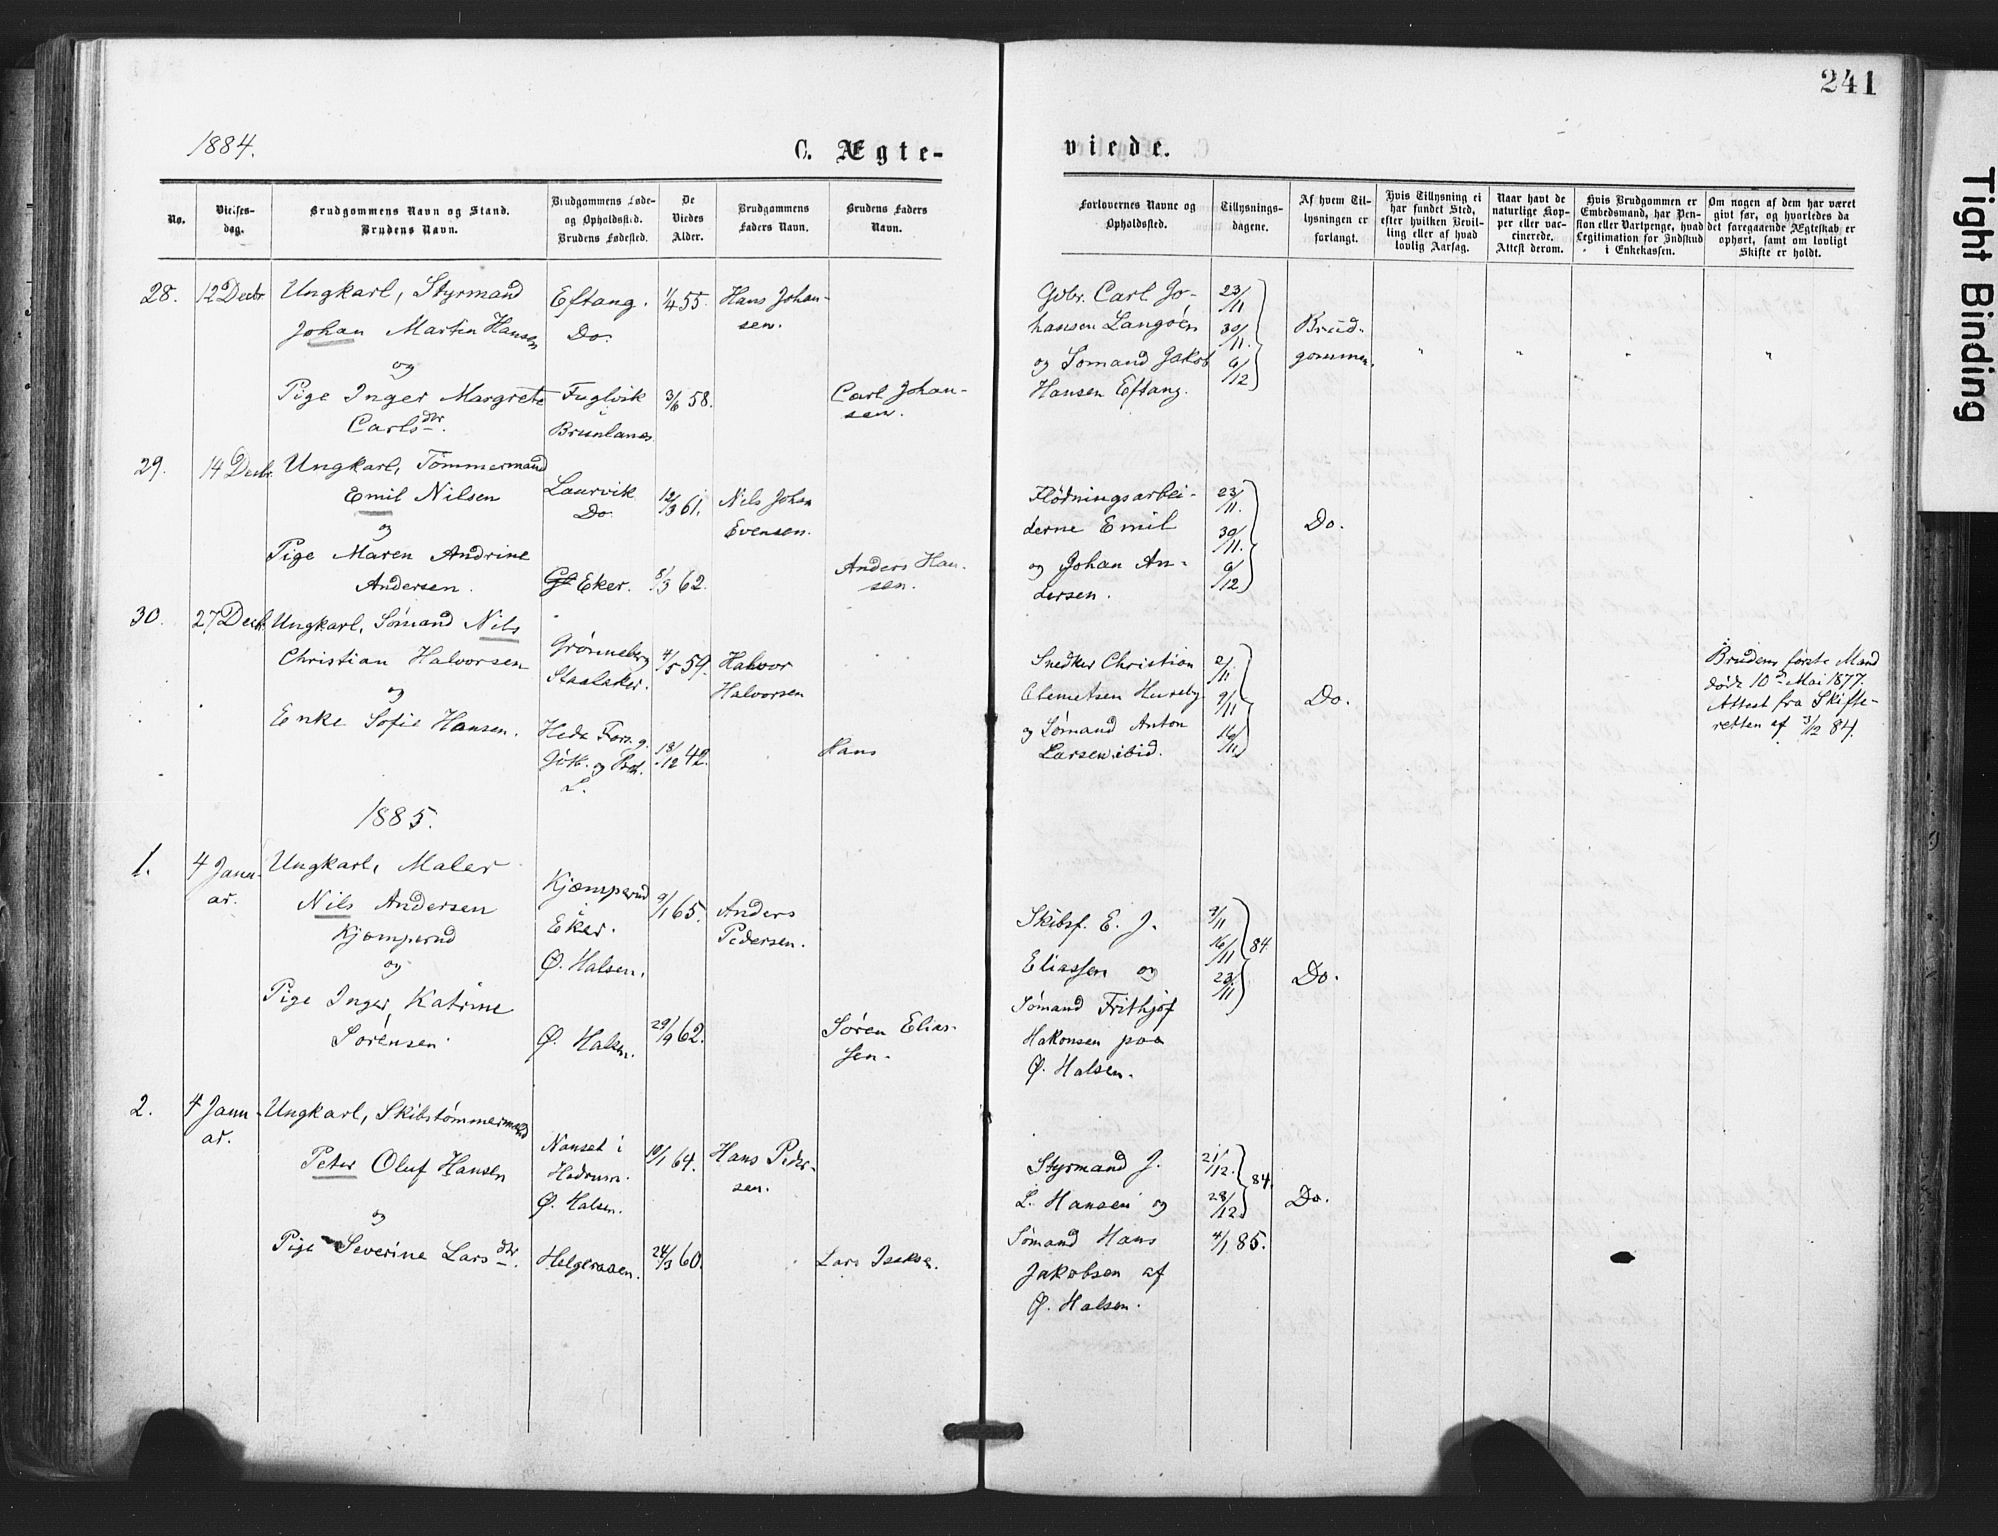 241
1884.
C. Ægte-
viede.
No.
Vielses-
dag.
Brudgommens Navn og Stand.
Brudens Navn.
Brudgommens Føde-
og Opholdssted.
Brudens Fødested.
De
Viedes
Alder.
Brudgommens
Faders Navn.
Brudens Faders
Navn.
Forlovernes Navne og
Opholdssted.
Tillysnings-
dagene.
Af hvem Til-
lysningen er
forlangt.
Hvis Tillysning ei
har fundet Sted,
efter hvilken Bevil-
ling eller af hvad
lovlig Aarsag.
Naar havt de
naturlige Kop-
per eller vac-
cinerede.
Attest derom.
Hvis Brudgommen er
Embedsmand, har Pen-
sion eller Vartpenge, hvad
Legitimation for Indskud
i Enkekassen.
Om nogen af dem har været
givt før, og hvorledes da
det foregaaende Ægteskab er
ophørt, samt om lovligt
Skifte er holdt.
28.
12 Decbr
Ungkarl, Styrmand
Johan Martin Hansen
og
Pige Inger Margrete
Carlsdtr.
Eftang.
Do.
Fuglvik
i
Brunlanes
1/4 55.
3/6 58.
Hans Johan-
sen.
Carl Johan-
sen.
Gdbr. Carl Jo-
hansen Langøen
og Sømand Jakob
Hansen Eftang.
23/11
30/11.
6/12
Brud-
gommen.
" " " "
29.
14 Decbr.
Ungkarl, Tømmermand
Emil Nilsen
og
Pige Maren Andrine
Andersen.
Laurvik
Do.
Eker.
12/3 61.
8/3 62.
Nils Johan
Evensen.
Anders Han-
sen.
Flødningsarbei-
derne Emil
og Johan An-
dersen.
23/11.
30/11.
6/12
Do.
30.
27 Decbr.
Ungkarl, Sømand Nils
Christian Halvorsen
og
Enke Sofie Hansen.
Grønneberg
Staalaker.
4/5 59.
18/12 42.
Halvor
Halvorsen
Hans
Snedker Christian
Clemetsen Huseby
og Sømand Anton
Larsen ibid.
2/11
9/11
16/11
Do.
Brudens første Mand
døde 10de Mai 1877.
Attest fra Skifte-
retten af 3/12 84.
1885.
1.
4 Janu-
ar.
Ungkarl, Maler
Nils Andersen
Kjæmperud
og
Pige Inger Katrine
Sørensen
Kjæmperud
i
Eker.
Ø. Halsen.
Ø. Halsen.
9/1 65.
29/9 62.
Anders
Pedersen.
Søren Elias-
sen.
Skibsf. E. J.
Eliassen og
Sømand Frithjof
Hakonsen paa
Ø. Halsen.
9/11
16/11
23/11
84.
Do.
2.
4 Janu-
ar.
Ungkarl, Skibstømmermand
Peter Oluf Hansen
og
Pige Severine Larsdtr.
Nanset i
Hedrum.
Ø. Halsen.
Helgeroaen.
19/1 64.
24/3 60.
Hans Peder-
sen.
Lars Isaksen.
Styrmand J.
L. Hansen og
Sømand Hans
Jakobsen af
Ø. Halsen.
21/12.
28/12
84.
4/1 85.
Do.
Tight Binding